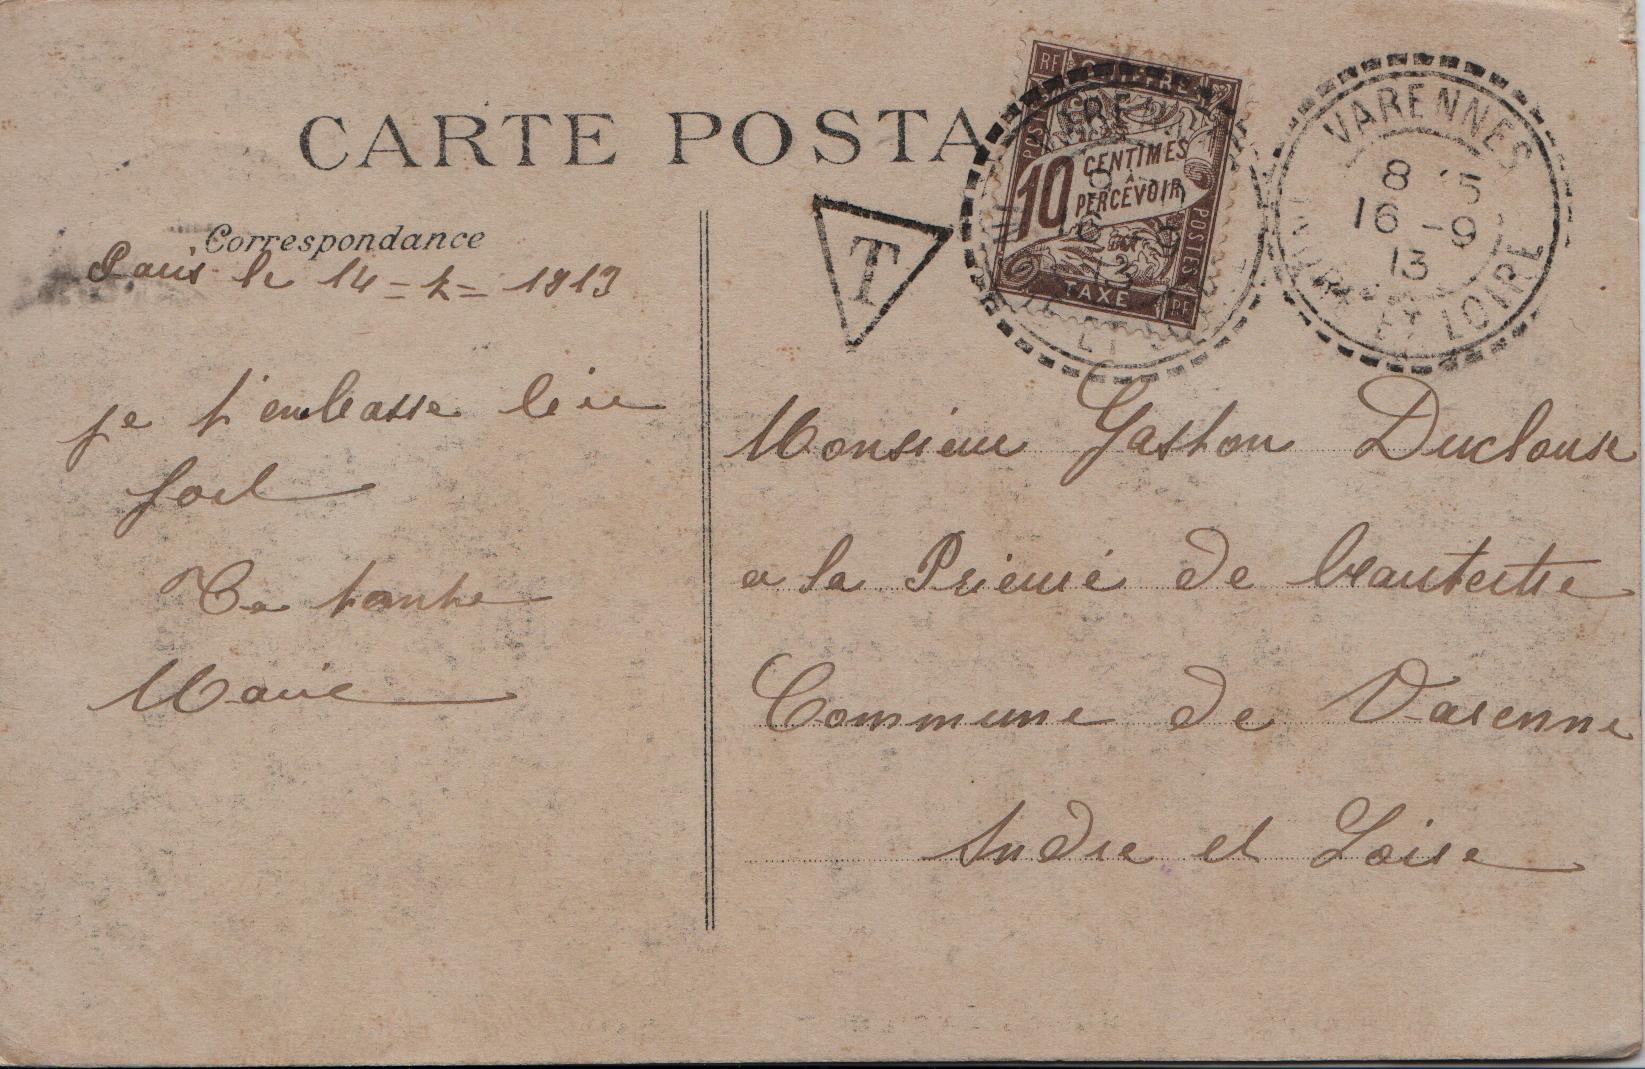 CARTE POSTA
Correspondance
Paris le 14 - - 1913
je t'embrasse bien
fort
Ta tante
Marie
T
10 CENTIMES
A
PERCEVOIR
POSTES
TAXE
RF
RF
VARENNES
8 15
16 -9
13
INDRE ET LOIRE
Monsieur Gaston
a la Prieuré de
Commune de Varenne
Indre et Loire